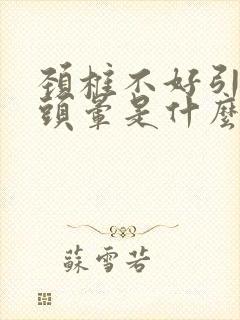 頚椎不好引
頭暈是什麼
蘇雪若